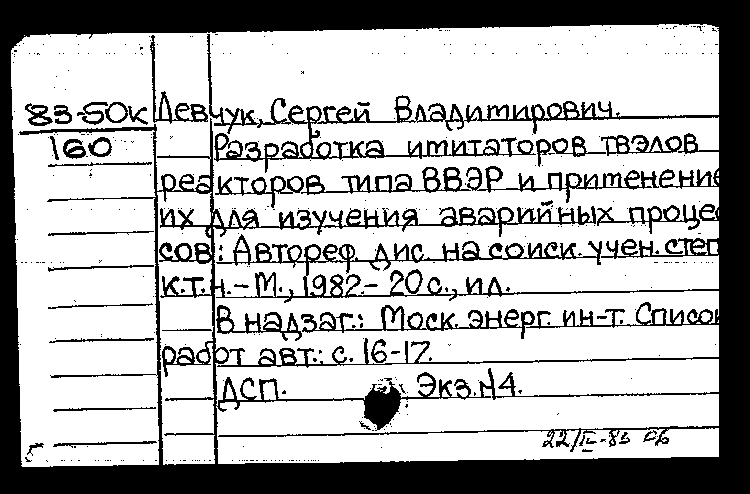 83-50к Девчук, Сергей Владимирович.
160 Разработка имитаторов твэлов
реакторов типа ВВЭР и применение
их для изучения аварийных процес
сов: Автореф. дис. на соиск. учен. степ
к.т.н. - М., 1982. - 20 с., ил.
В надзаг.: Моск. энерг. ин-т. Список
работ авт.: с. 16-17.
ДСП. Экз. №4.
22/IV-83